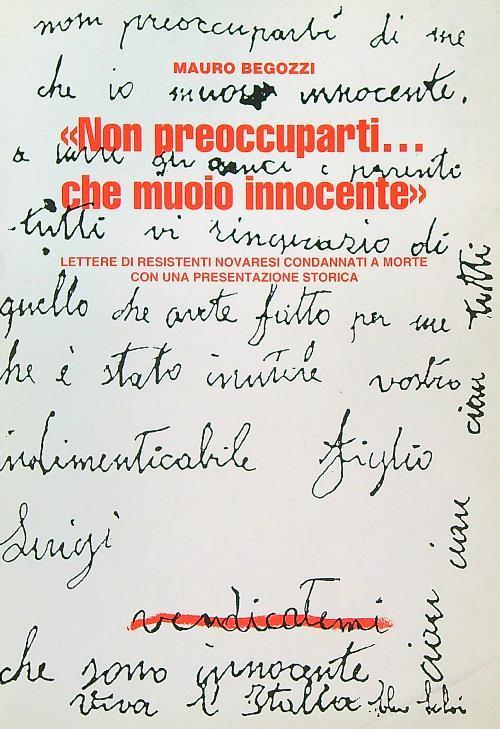 non preoccuparti di me
MAURO BEGOZZI
che io muoio innocente.
«Non preoccuparti...
a tutti gli amici e parenti
che muoio innocente»
tutti vi ringrazio di
LETTERE DI RESISTENTI NOVARESI CONDANNATI A MORTE
CON UNA PRESENTAZIONE STORICA
quello che avete fatto per me
he è stato inutile vostro
indimenticabile figlio
Luigi
vendicatemi
che sono innocente
viva l'Italia
ciau ciau ciau tutti